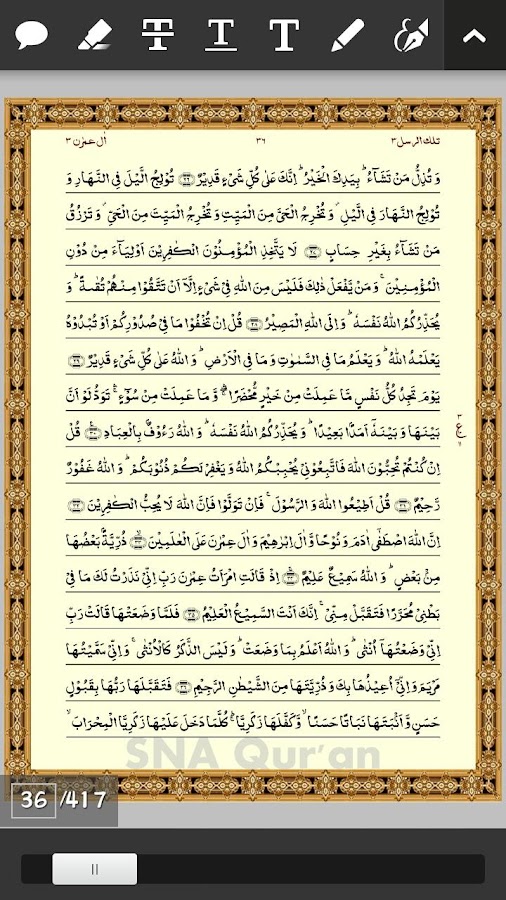 تلك الرسل ٣
٣٦
اٰل عمرٰن ٣
وَ تُذِلُّ مَنْ تَشَآءُ ؕ بِيَدِكَ الْخَيْرُ ؕ اِنَّكَ عَلٰى كُلِّ شَىْءٍ قَدِيْرٌ ﴿۲۶﴾ تُوْلِجُ الَّيْلَ فِى النَّهَارِ وَ
تُوْلِجُ النَّهَارَ فِى الَّيْلِ ۫ وَ تُخْرِجُ الْحَىَّ مِنَ الْمَيِّتِ وَ تُخْرِجُ الْمَيِّتَ مِنَ الْحَىِّ ۫ وَ تَرْزُقُ
مَنْ تَشَآءُ بِغَيْرِ حِسَابٍ ﴿۲۷﴾ لَا يَتَّخِذِ الْمُؤْمِنُوْنَ الْكٰفِرِيْنَ اَوْلِيَآءَ مِنْ دُوْنِ
الْمُؤْمِنِيْنَ ۚ وَ مَنْ يَّفْعَلْ ذٰلِكَ فَلَيْسَ مِنَ اللّٰهِ فِىْ شَىْءٍ اِلَّاۤ اَنْ تَتَّقُوْا مِنْهُمْ تُقٰىةً ؕ وَ
يُحَذِّرُكُمُ اللّٰهُ نَفْسَهٗ ؕ وَ اِلَى اللّٰهِ الْمَصِيْرُ ﴿۲۸﴾ قُلْ اِنْ تُخْفُوْا مَا فِىْ صُدُوْرِكُمْ اَوْ تُبْدُوْهُ
يَعْلَمْهُ اللّٰهُ ؕ وَ يَعْلَمُ مَا فِى السَّمٰوٰتِ وَ مَا فِى الْاَرْضِ ؕ وَ اللّٰهُ عَلٰى كُلِّ شَىْءٍ قَدِيْرٌ ﴿۲۹﴾
يَوْمَ تَجِدُ كُلُّ نَفْسٍ مَّا عَمِلَتْ مِنْ خَيْرٍ مُّحْضَرًا ۛۖۚ وَّ مَا عَمِلَتْ مِنْ سُوْٓءٍ ۛۚ تَوَدُّ لَوْ اَنَّ
بَيْنَهَا وَ بَيْنَهٗۤ اَمَدًۢا بَعِيْدًا ؕ وَ يُحَذِّرُكُمُ اللّٰهُ نَفْسَهٗ ؕ وَ اللّٰهُ رَءُوْفٌۢ بِالْعِبَادِ ﴿۳۰﴾ قُلْ
اِنْ كُنْتُمْ تُحِبُّوْنَ اللّٰهَ فَاتَّبِعُوْنِىْ يُحْبِبْكُمُ اللّٰهُ وَ يَغْفِرْ لَكُمْ ذُنُوْبَكُمْ ؕ وَ اللّٰهُ غَفُوْرٌ
رَّحِيْمٌ ﴿۳۱﴾ قُلْ اَطِيْعُوا اللّٰهَ وَ الرَّسُوْلَ ۚ فَاِنْ تَوَلَّوْا فَاِنَّ اللّٰهَ لَا يُحِبُّ الْكٰفِرِيْنَ ﴿۳۲﴾
اِنَّ اللّٰهَ اصْطَفٰۤى اٰدَمَ وَ نُوْحًا وَّ اٰلَ اِبْرٰهِيْمَ وَ اٰلَ عِمْرٰنَ عَلَى الْعٰلَمِيْنَ ﴿۳۳﴾ ذُرِّيَّةًۢ بَعْضُهَا
مِنْۢ بَعْضٍ ؕ وَ اللّٰهُ سَمِيْعٌ عَلِيْمٌ ﴿۳۴﴾ اِذْ قَالَتِ امْرَاَتُ عِمْرٰنَ رَبِّ اِنِّىْ نَذَرْتُ لَكَ مَا فِىْ
بَطْنِىْ مُحَرَّرًا فَتَقَبَّلْ مِنِّىْ ۚ اِنَّكَ اَنْتَ السَّمِيْعُ الْعَلِيْمُ ﴿۳۵﴾ فَلَمَّا وَضَعَتْهَا قَالَتْ رَبِّ
اِنِّىْ وَضَعْتُهَاۤ اُنْثٰى ؕ وَ اللّٰهُ اَعْلَمُ بِمَا وَضَعَتْ ؕ وَ لَيْسَ الذَّكَرُ كَالْاُنْثٰى ۚ وَ اِنِّىْ سَمَّيْتُهَا
مَرْيَمَ وَ اِنِّىْۤ اُعِيْذُهَا بِكَ وَ ذُرِّيَّتَهَا مِنَ الشَّيْطٰنِ الرَّجِيْمِ ﴿۳۶﴾ فَتَقَبَّلَهَا رَبُّهَا بِقَبُوْلٍ
حَسَنٍ وَّ اَنْۢبَتَهَا نَبَاتًا حَسَنًا ۙ وَّ كَفَّلَهَا زَكَرِيَّا ؕۚ كُلَّمَا دَخَلَ عَلَيْهَا زَكَرِيَّا الْمِحْرَابَ ۙ
SNA Qur'an
36 /417